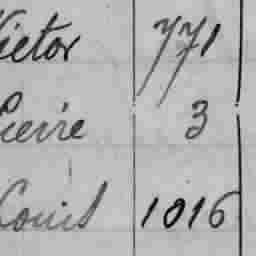 Victor 771
Pierre 3
Louis 1016